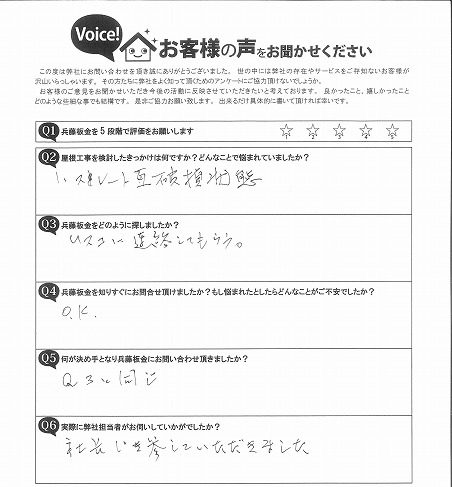 Voice!
お客様の声をお聞かせください
この度は弊社にお問い合わせを頂き誠にありがとうございました。 世の中には弊社の存在やサービスをご存知ないお客様が
沢山いらっしゃいます。 その方たちに弊社をよく知って頂くためのアンケートにご協力頂けないでしょうか。
お客様のご意見をお聞かせいただき今後の活動に反映させていただきたいと考えております。 良かったこと、嬉しかったこと
どのような些細な事でも結構です。 是非ご協力お願い致します。 出来るだけ具体的に書いて頂ければ幸いです。
Q1 兵藤板金を5段階で評価をお願いします
☆1 ☆2 ☆3 ☆4 ☆5
Q2 屋根工事を検討したきっかけは何ですか？どんなことで悩まれていましたか？
1、スレート瓦破損状態
Q3 兵藤板金をどのように探しましたか？
に連絡してもらう。
Q4 兵藤板金を知りすぐにお問合せ頂けましたか？もし悩まれたとしたらどんなことがご不安でしたか？
O.K.
Q5 何が決め手となり兵藤板金にお問い合わせ頂きましたか？
Q3に同じ
Q6 実際に弊社担当者がお伺いしていかがでしたか？
社長していただきました